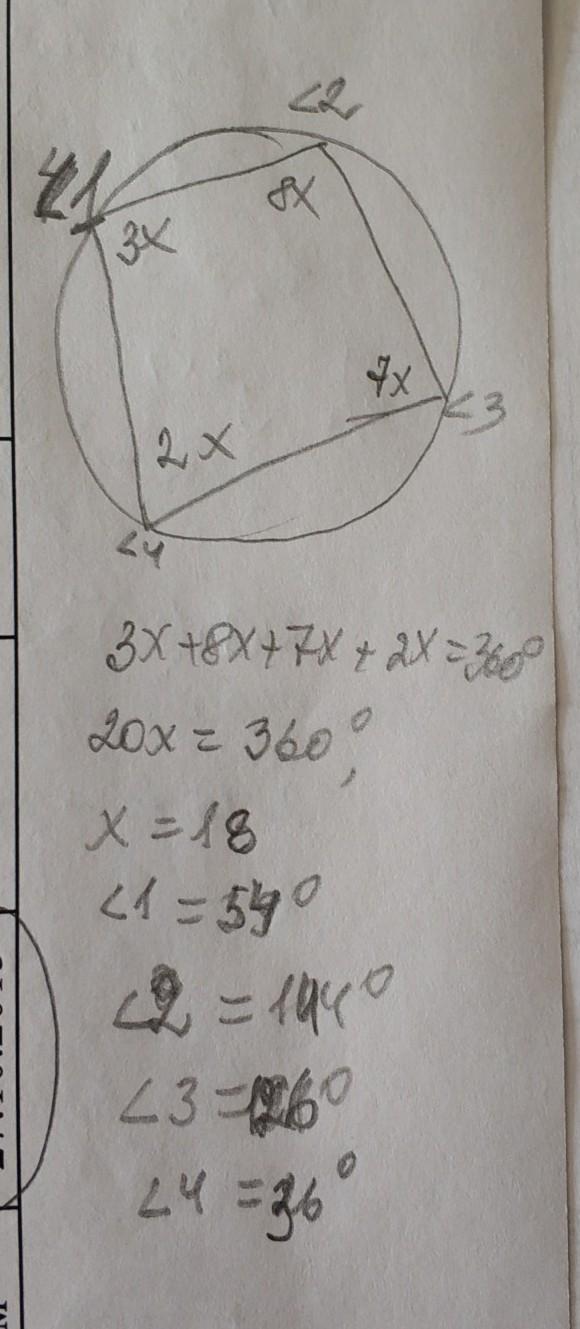 <2
<1
8x
3x
7x
<3
2x
<4
3x+8x+7x+2x=360°
20x = 360°,
x = 18
<1 = 54°
<2 = 144°
<3 = 126°
<4 = 36°